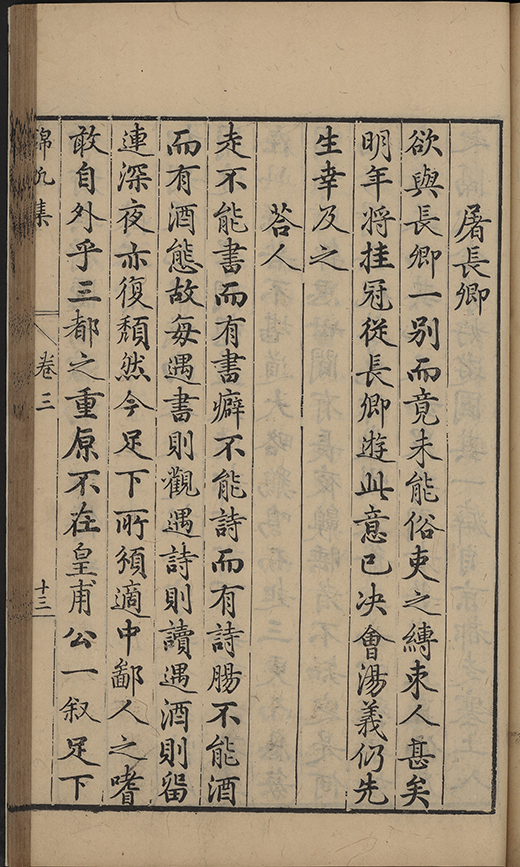 屠長卿
欲與長卿一別而竟未能俗吏之縛束人甚矣
明年将挂冠從長卿遊此意已决會湯義仍先
生幸及之
荅人
走不能書而有書癖不能詩而有詩腸不能酒
而有酒態故每遇書則觀遇詩則讀遇酒則留
連深夜亦復頹然今足下所須適中鄙人之嗜
敢自外乎三都之重原不在皇甫公一叙足下
錦帆集
卷三
十三